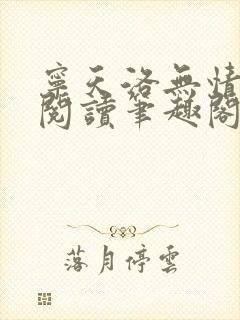 寧天洛無情
閱讀筆趣閣
落月停雲